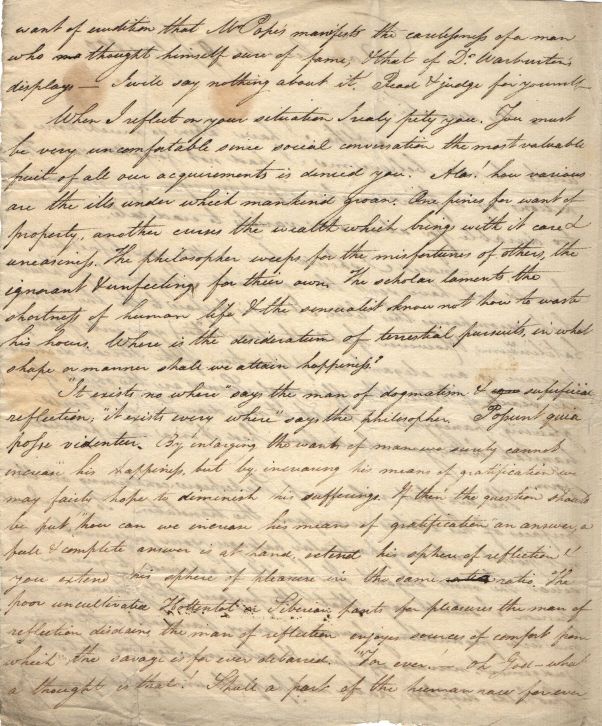 want of erudition that Mr Pope's manifests the carelessness of a man
who thought himself sure of fame, & that of Dr Warburton
displays — I will say nothing about it. Read & judge for yourself—
When I reflect on your situation I realy pity you. You must
be very uncomfortable since social conversation the most valuable
fruit of all our acquirements is denied you. Alas! how various
are the ills under which mankind groan. One pines for want of
property, another curses the wealth which brings with it care &
uneasiness. The philosopher weeps for the misfortunes of others, the
ignorant & unfeeling for their own. The scholar laments the
shortness of human life & the sensualist know not how to waste
his hours. Where is the desideratum of terrestial pursuits, in what
shape or manner shall we attain happiness?
"It exists no where" says the man of dogmatism & superficial
reflection; "it exists every where" says the philosopher. Possunt quia
posse videntur. By enlarging the wants of man we surely cannot
increase his happiness, but by increasing his means of gratification we
may fairly hope to diminish his sufferings. If then the question should
be put, "how can we increase his means of gratification" an answer, a
full & complete answer is at hand, extend his sphere of reflection!
you extend his sphere of pleasure in the same ratio. The
poor uncultivated Hottentot or Siberian pants for pleasures the man of
reflection disdains, the man of reflection enjoys sources of comfort from
which the savage is for ever debarred. "For ever!— oh God— what
a thought is that! Shall a part of the human race for ever